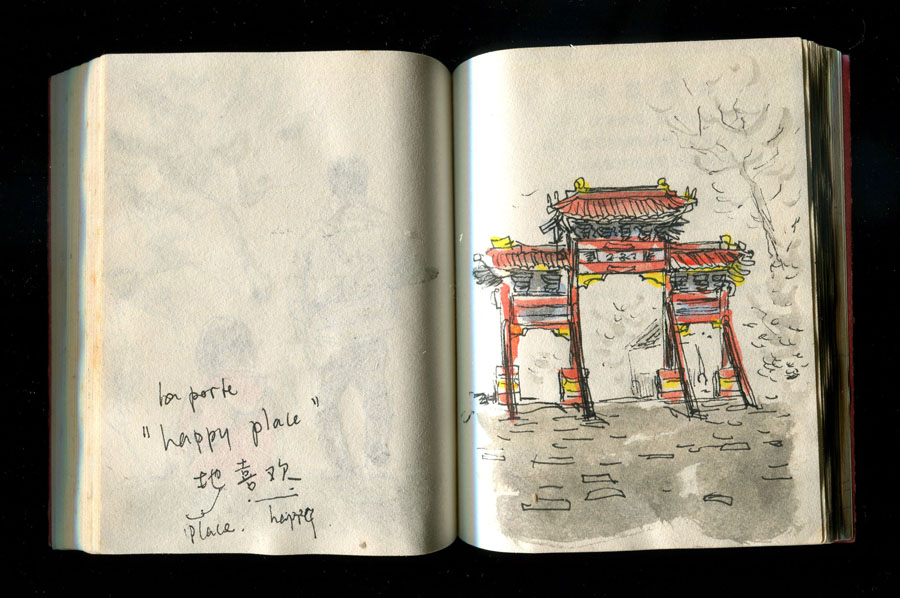 la porte
"happy place"
地喜欢
place. happy.